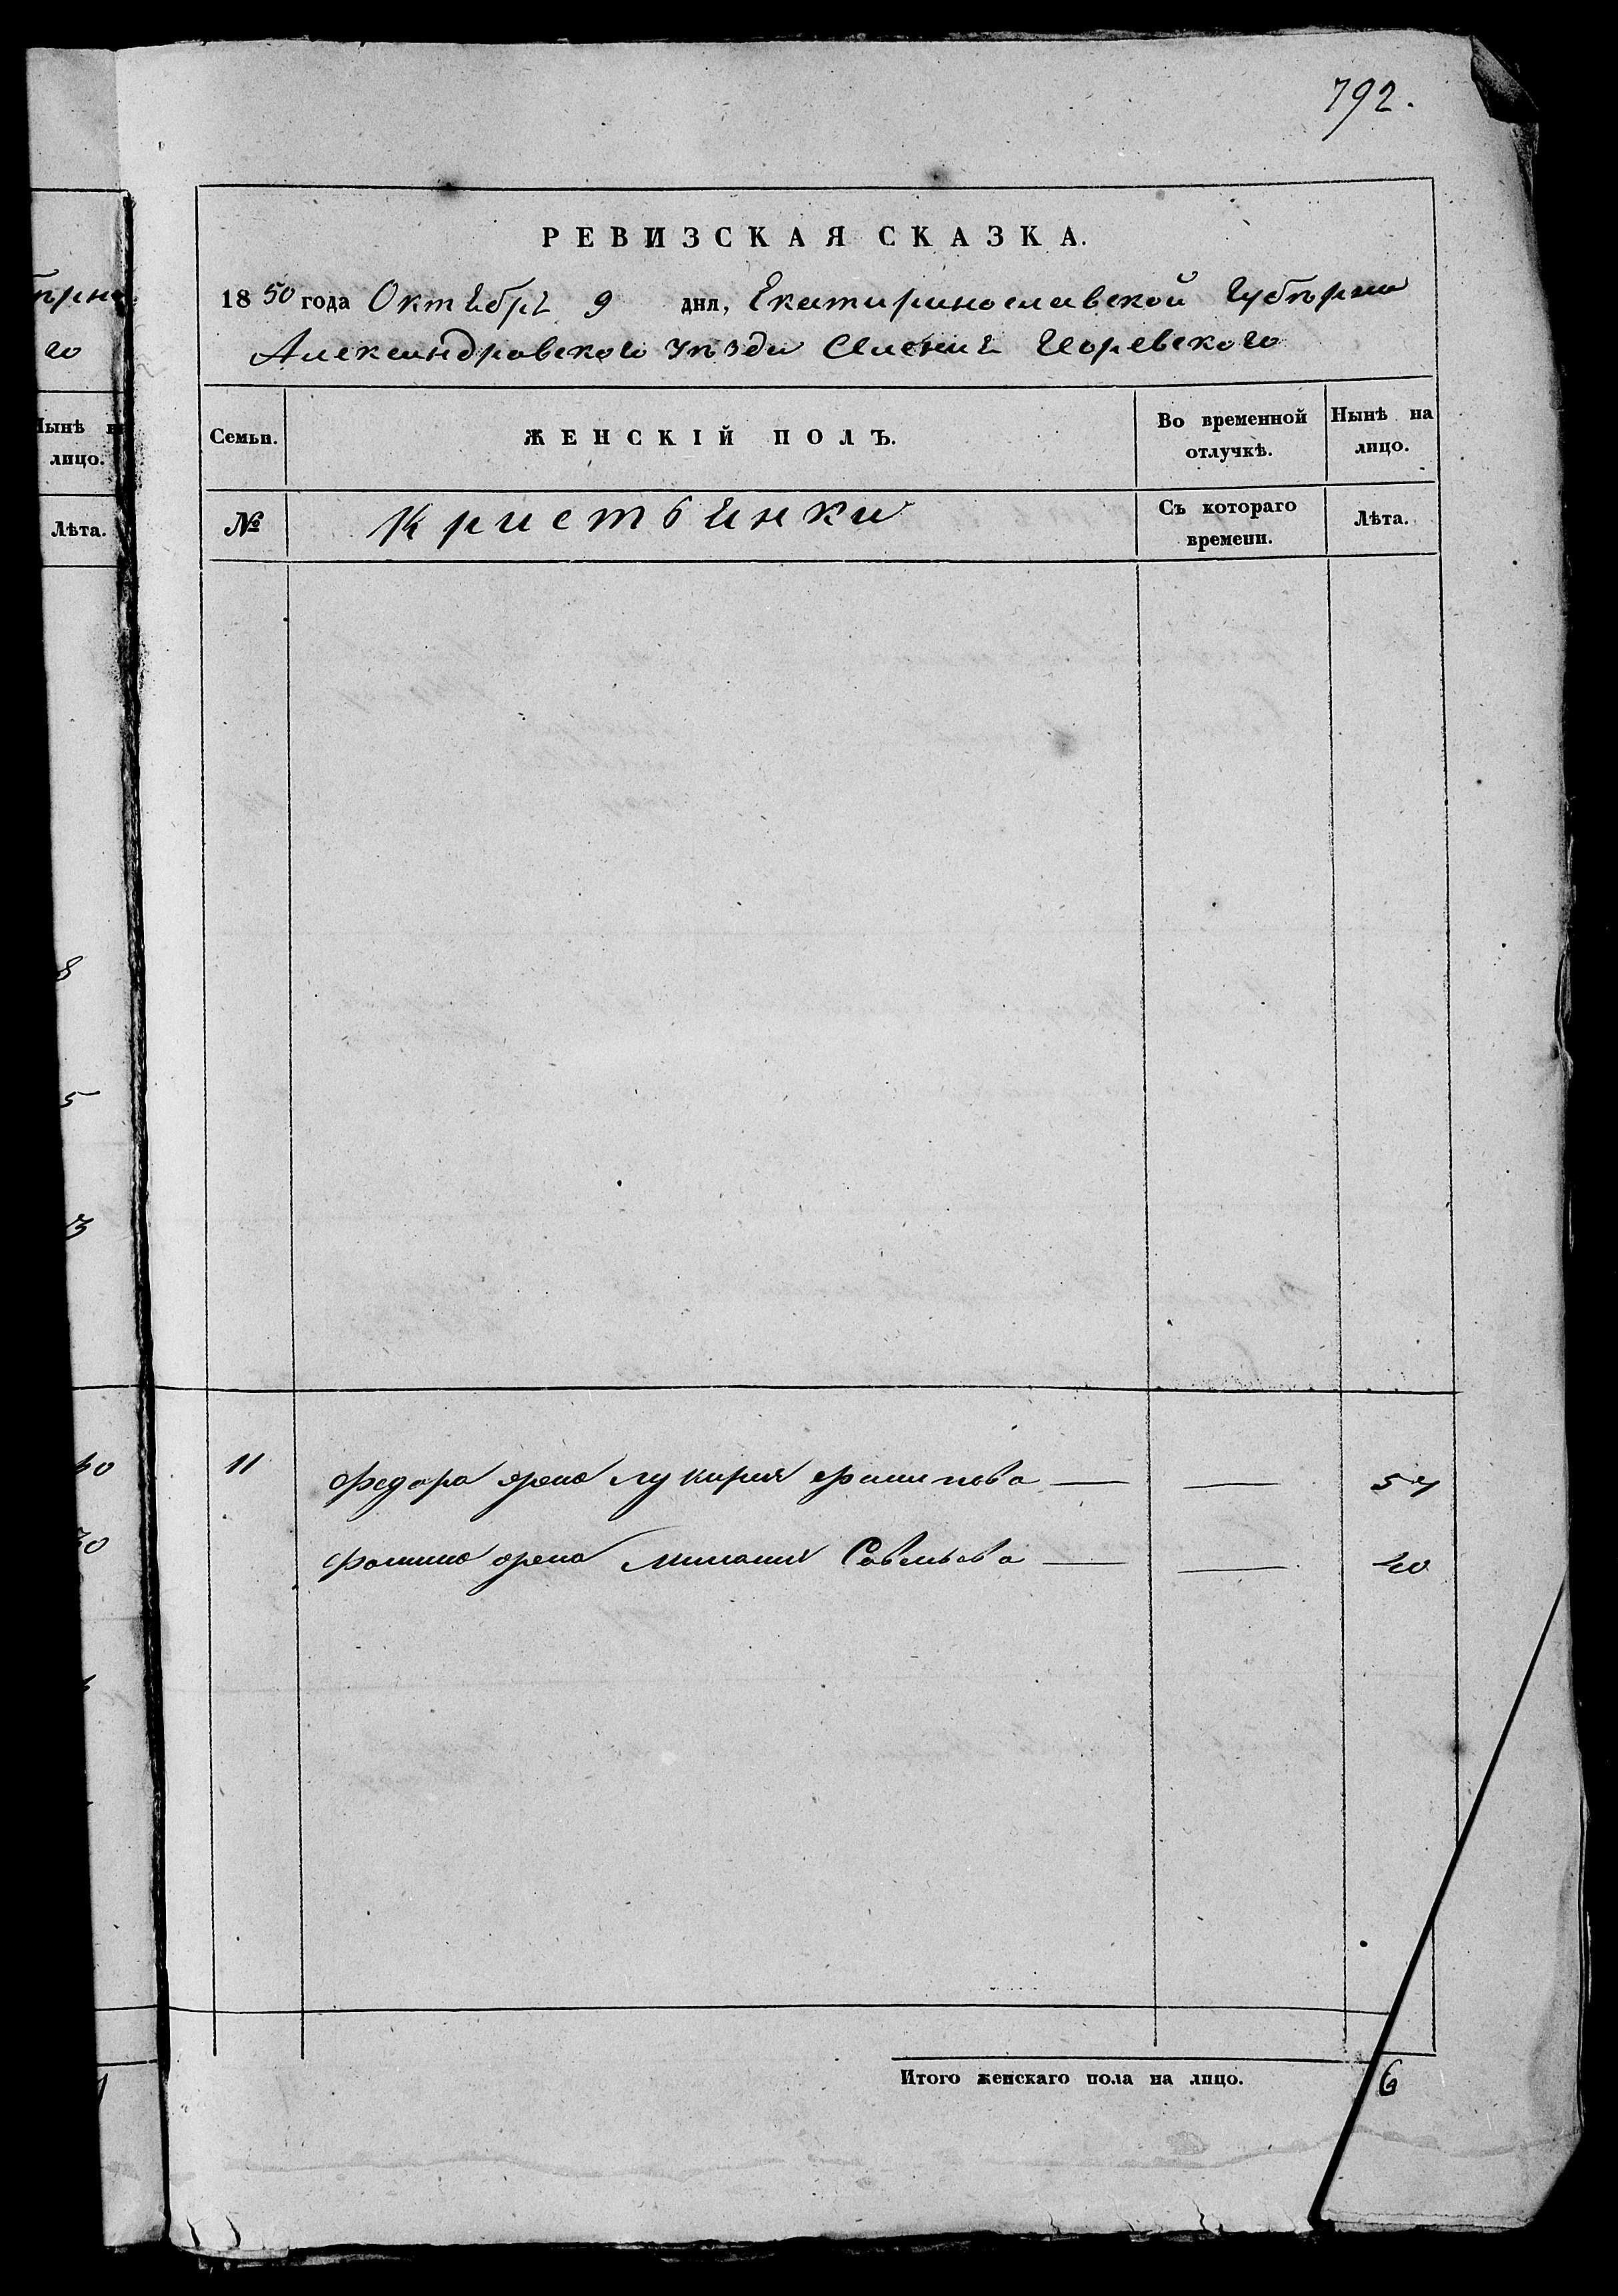 792.
РЕВИЗСКАЯ СКАЗКА.
1850 года Октября 9 дня, Екатиринославской Губѣрнии
Александровского Уѣзда Имения
Семьи. ЖЕНСКІЙ ПОЛЪ. Во временной отлучкѣ. Нынѣ на лицо.
№ Кристьянки Съ котораго времени. Лѣта.
11 Федора жена Лукирия — — 57
жена Милания Савельева — — 20
Итого женскаго пола на лицо.
Нынѣ
лицо.
Лѣта.
8
5
3